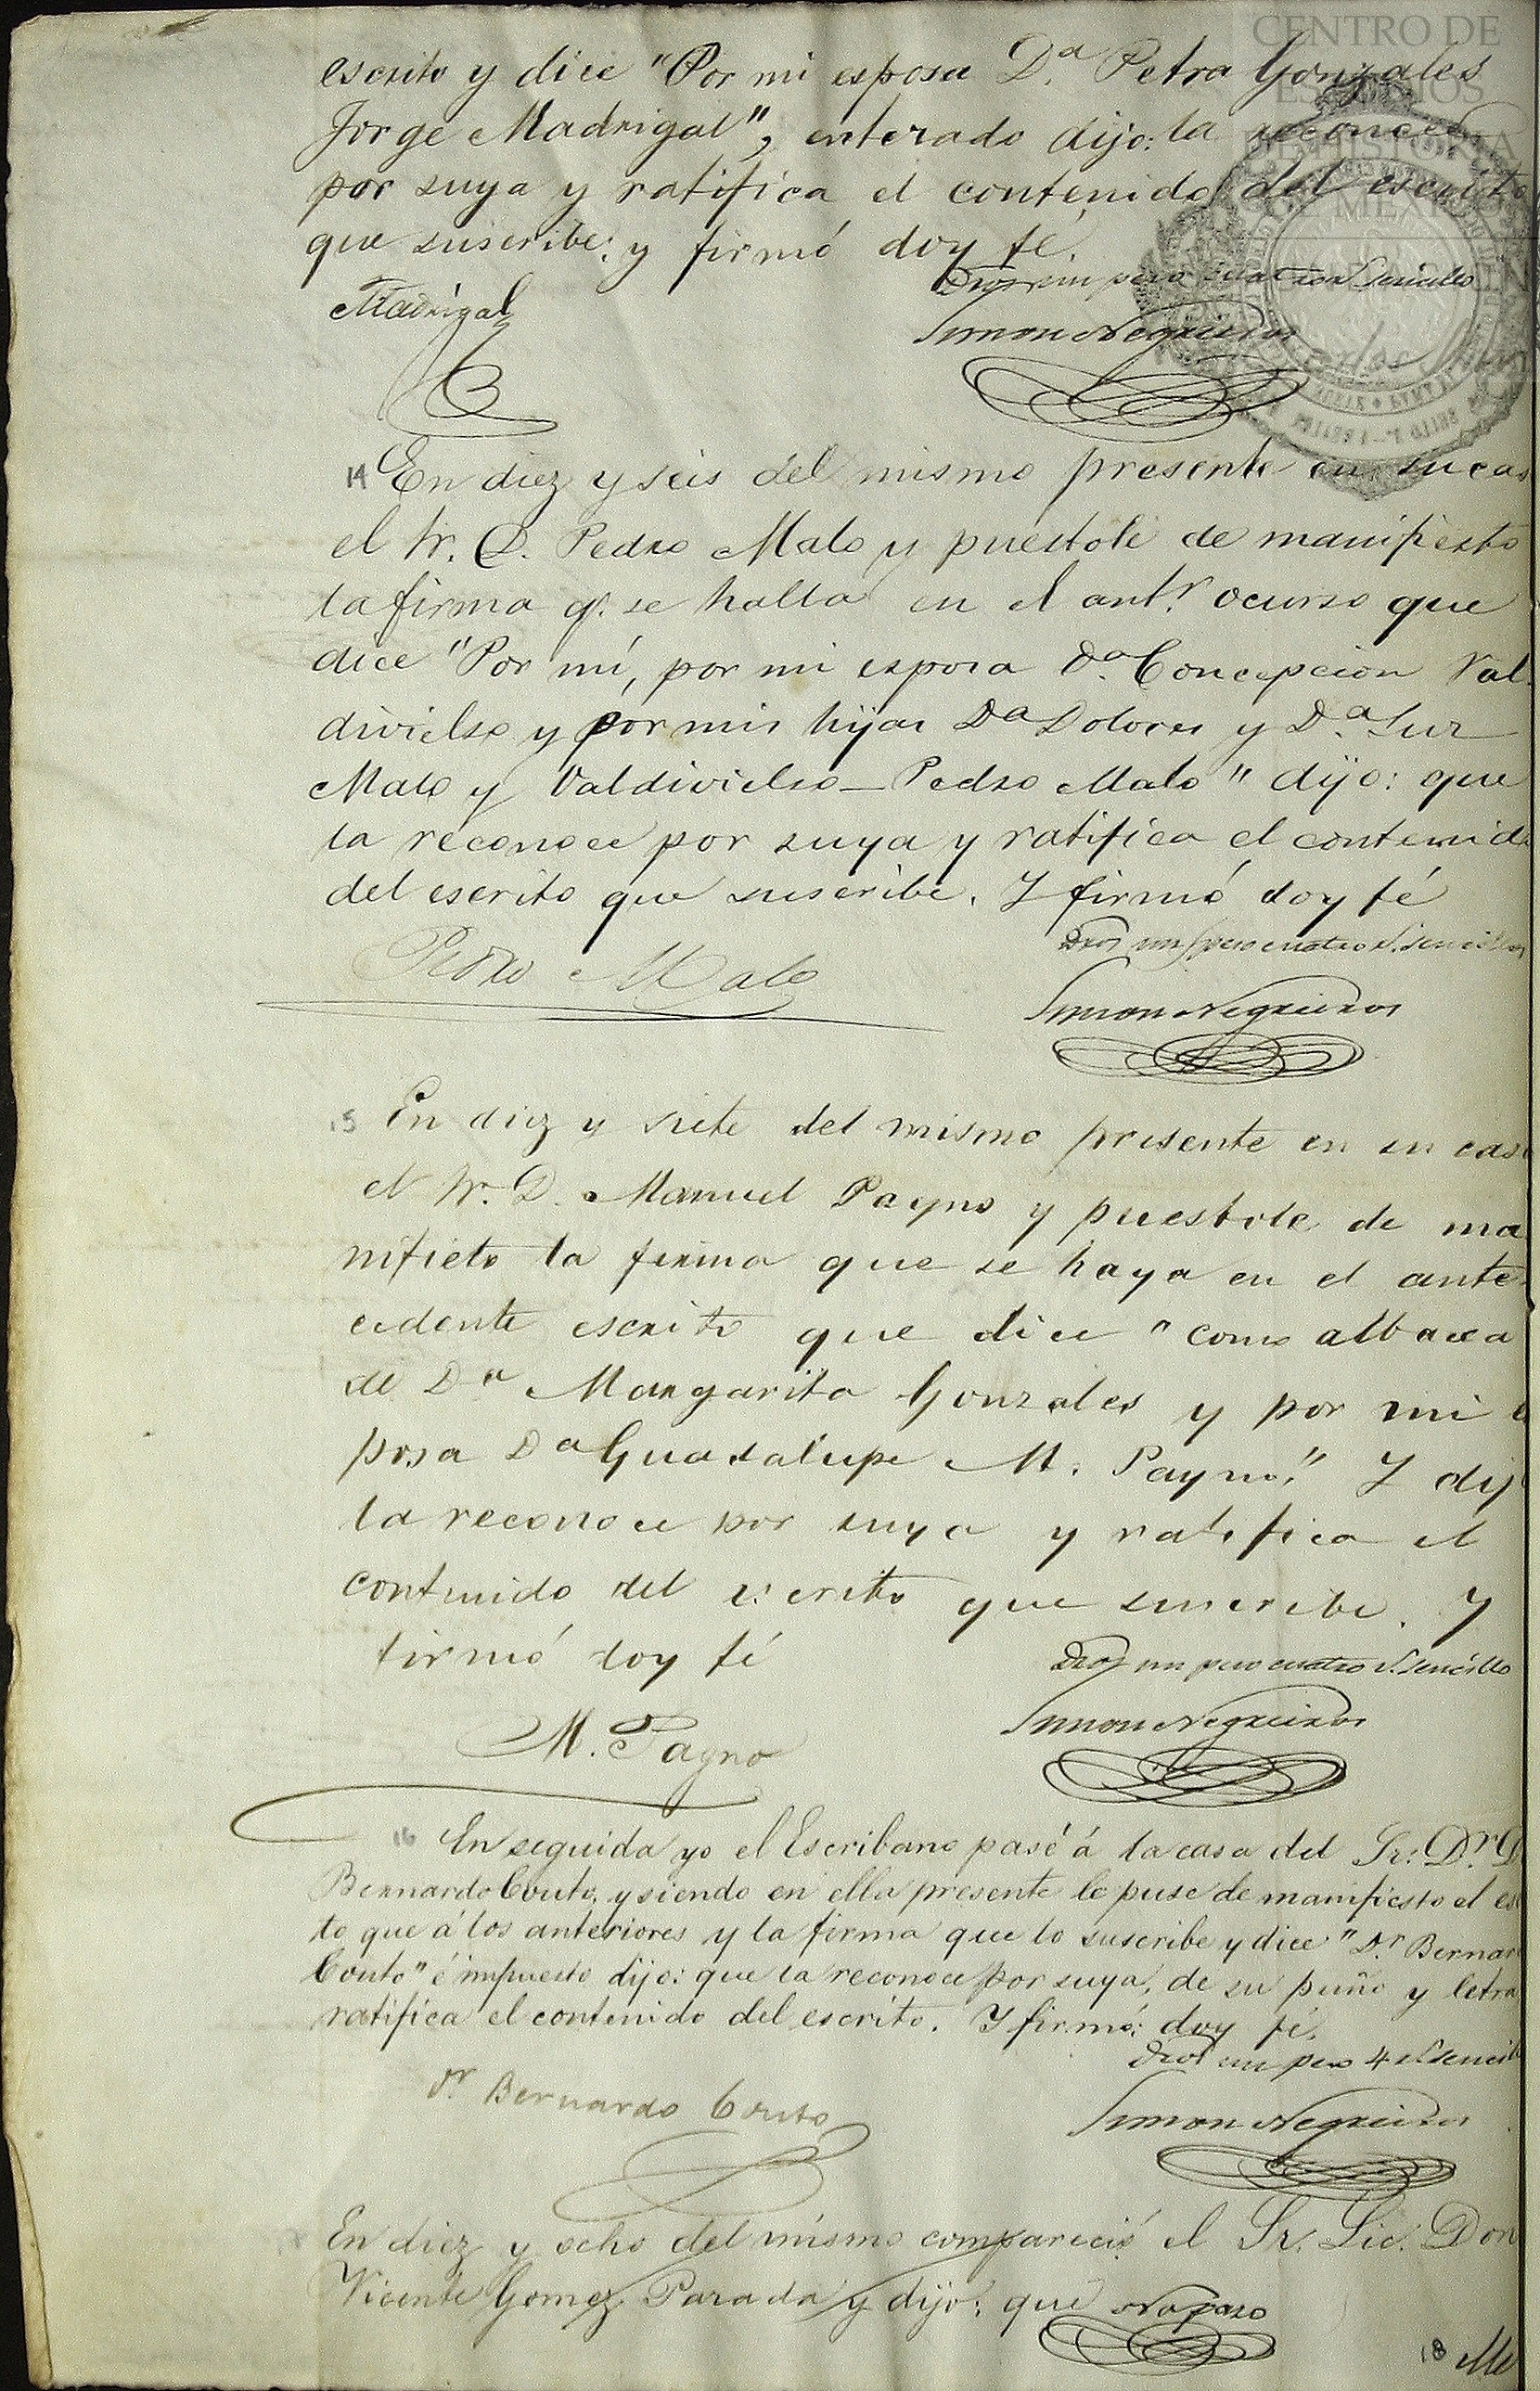 CENTRO DE
ESTUDIOS
DE HISTORIA
DE MEXICO
escrito y dice "Por mi esposa D.a Petra Gonzales
Jorge Madrigal", enterado dijo: la reconoce
por suya y ratifica el contenido del escrito
que suscribe: y firmó doy fé.
Dros un peso cuatro r.s sencillo
Madrigal
Simon Negreiros
14 En diez y seis del mismo presente en su cas
el Sr. D. Pedro Malo y puestole de manifiesto
la firma q.e se halla en el ant.r ocurso que
dice "Por mí, por mi esposa D.a Concepcion Val
divielso y por mis hijas Da Dolores y D.a Luz
Malo y Valdivielso — Pedro Malo" dijo: que
la reconoce por suya y ratifica el contenido
del escrito que suscribe. Y firmó doy fé
Dros un peso cuatro r.s sencillos
Pedro Malo
Simon Negreiros
15 En diez y siete del mismo presente en su casa
el Sr. D. Manuel Payno y puestole de ma
nifieto la firma que se haya en el ante
cedente escrito que dice "como albacea
de Da Margarita Gonzales y por mi e
posa Da Guadalupe M. Payno." Y dij
la reconoce por suya y ratifica el
contenido del escrito que suscribe. Y
firmó doy fé
Dros un peso cuatro r.s sencillo
M. Payno
Simon Negreiros
16 En seguida yo el Escribano pasé á la casa del Sr. D.r D
Bernardo Couto, y siendo en ella presente le puse de manifiesto el es
to que á los anteriores y la firma que lo suscribe y dice "D.r Bernar
Couto" é impuesto dijo: que la reconoce por suya, de su puño y letra
ratifica el contenido del escrito. Y firmó: doy fé.
Dros un peso 4 r.s sencill
Dr Bernardo Couto
Simon Negreiros
En diez y ocho del mismo compareció el Sr. Lic. Don
Vicente Gomez Parada y dijo: que No pasó
18 Me